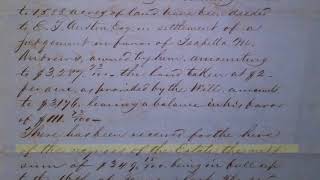 to 1588 acres of land have been deeded
to E. T. Austin Esq. in settlement of a
judgement in favor of Isabella M.
Andrews, owned by him, amounting
to $3287 /100 the land taken at $2
per acre, as provided by the Wills, amounts
to $3176, leaving a balance in his favor
of $111. /100
There has been received for the hire
of the negroes of the Estate the net
sum of $349 15/100 being in full up
to the 16th of